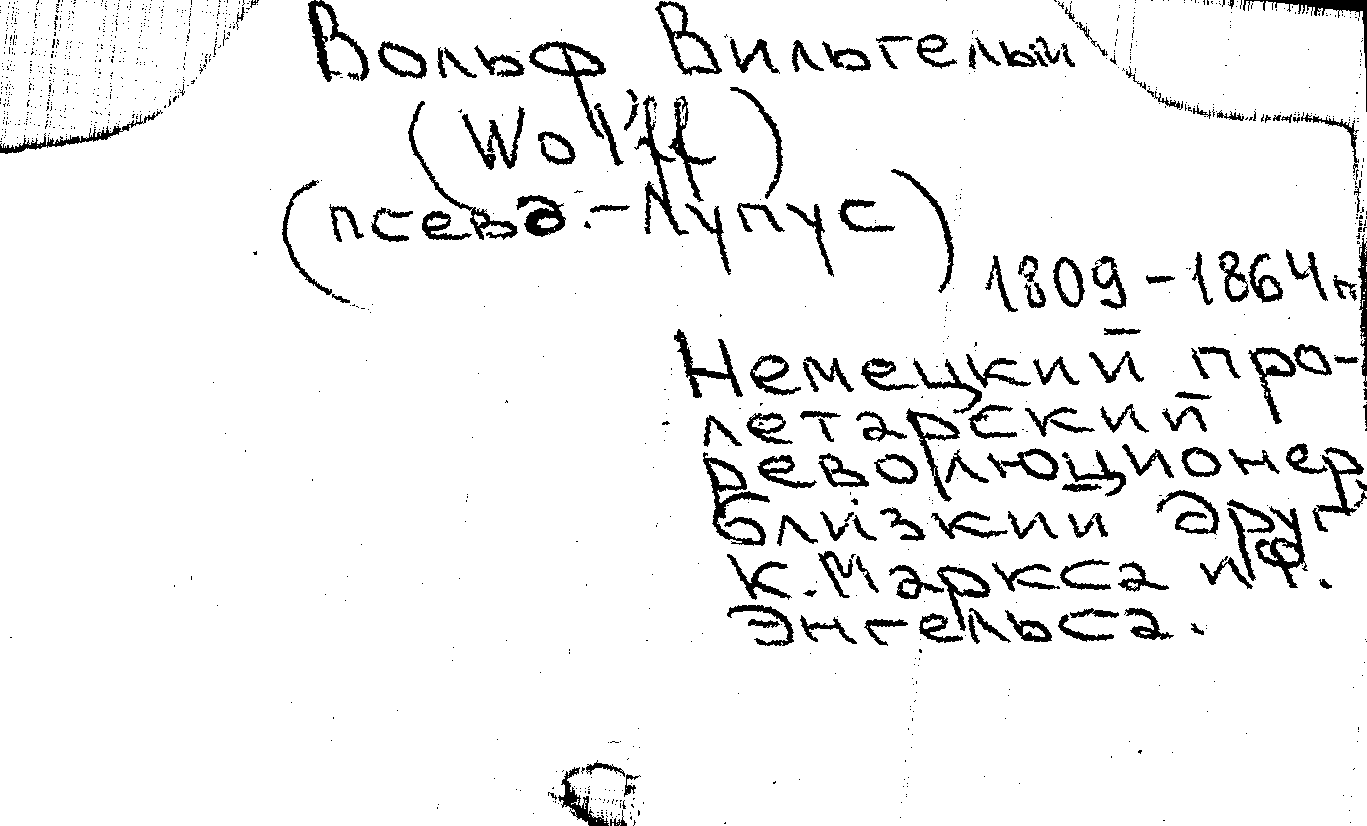 Вольф Вильгельм
(Wolff)
(псевд.-Лупус)
1809-1864гг
Немецкий про-
летарский
революционер,
близкий друг
К. Маркса и Ф.
Энгельса.